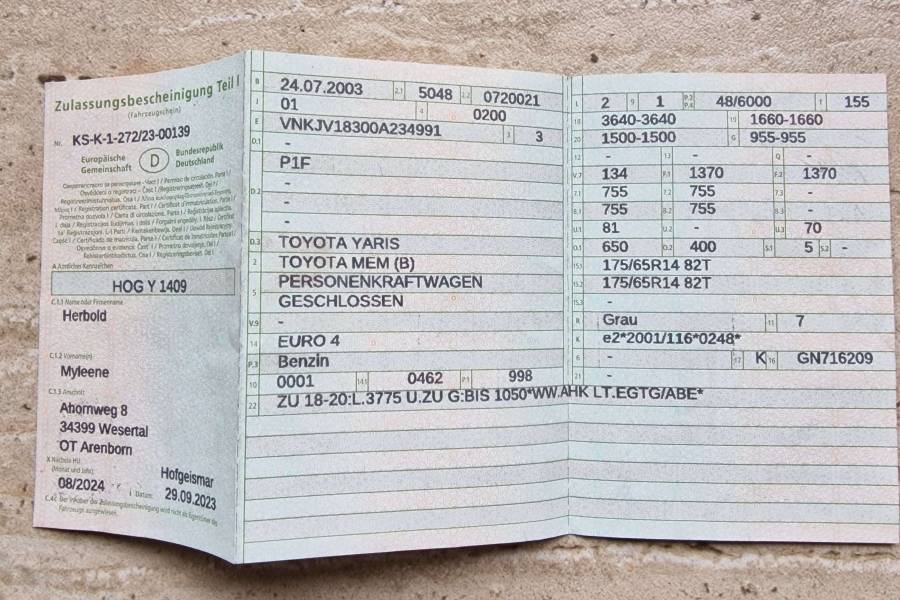 Zulassungsbescheinigung Teil I
(Fahrzeugschein)
Nr. KS-K-1-272/23-00139
Europäische Gemeinschaft D Bundesrepublik Deutschland
A Amtliches Kennzeichen
HOG Y 1409
C.1.1 Name oder Firmenname
Herbold
C.1.2 Vorname(n)
Myleene
C.1.3 Anschrift
Ahornweg 8
34399 Wesertal
OT Arenborn
X Nächste HU
(Monat und Jahr)
08/2024
Hofgeismar
I Datum: 29.09.2023
C.4c Der Inhaber der Zulassungsbescheinigung wird nicht als Eigentümer des
Fahrzeugs ausgewiesen.
B 24.07.2003 2.1 5048 2.2 0720021
J 01 4 0200
E VNKJV18300A234991 3 3
D.1 -
P1F
D.2 -
-
-
D.3 TOYOTA YARIS
2 TOYOTA MEM (B)
5 PERSONENKRAFTWAGEN
GESCHLOSSEN
V.9 -
14 EURO 4
P.3 Benzin
10 0001 14.1 0462 P.1 998
22 ZU 18-20:L.3775 U.ZU G:BIS 1050*WW.AHK LT.EGTG/ABE*
L 2 9 1 P.2 P.4 48/6000 T 155
18 3640-3640 19 1660-1660
20 1500-1500 G 955-955
12 - 13 - Q -
V.7 134 F.1 1370 F.2 1370
7.1 755 7.2 755 7.3 -
8.1 755 8.2 755 8.3 -
U.1 81 U.2 - U.3 70
O.1 650 O.2 400 S.1 5 S.2 -
15.1 175/65R14 82T
15.2 175/65R14 82T
15.3 -
R Grau 11 7
K e2*2001/116*0248*
6 - 17 K 16 GN716209
21 -